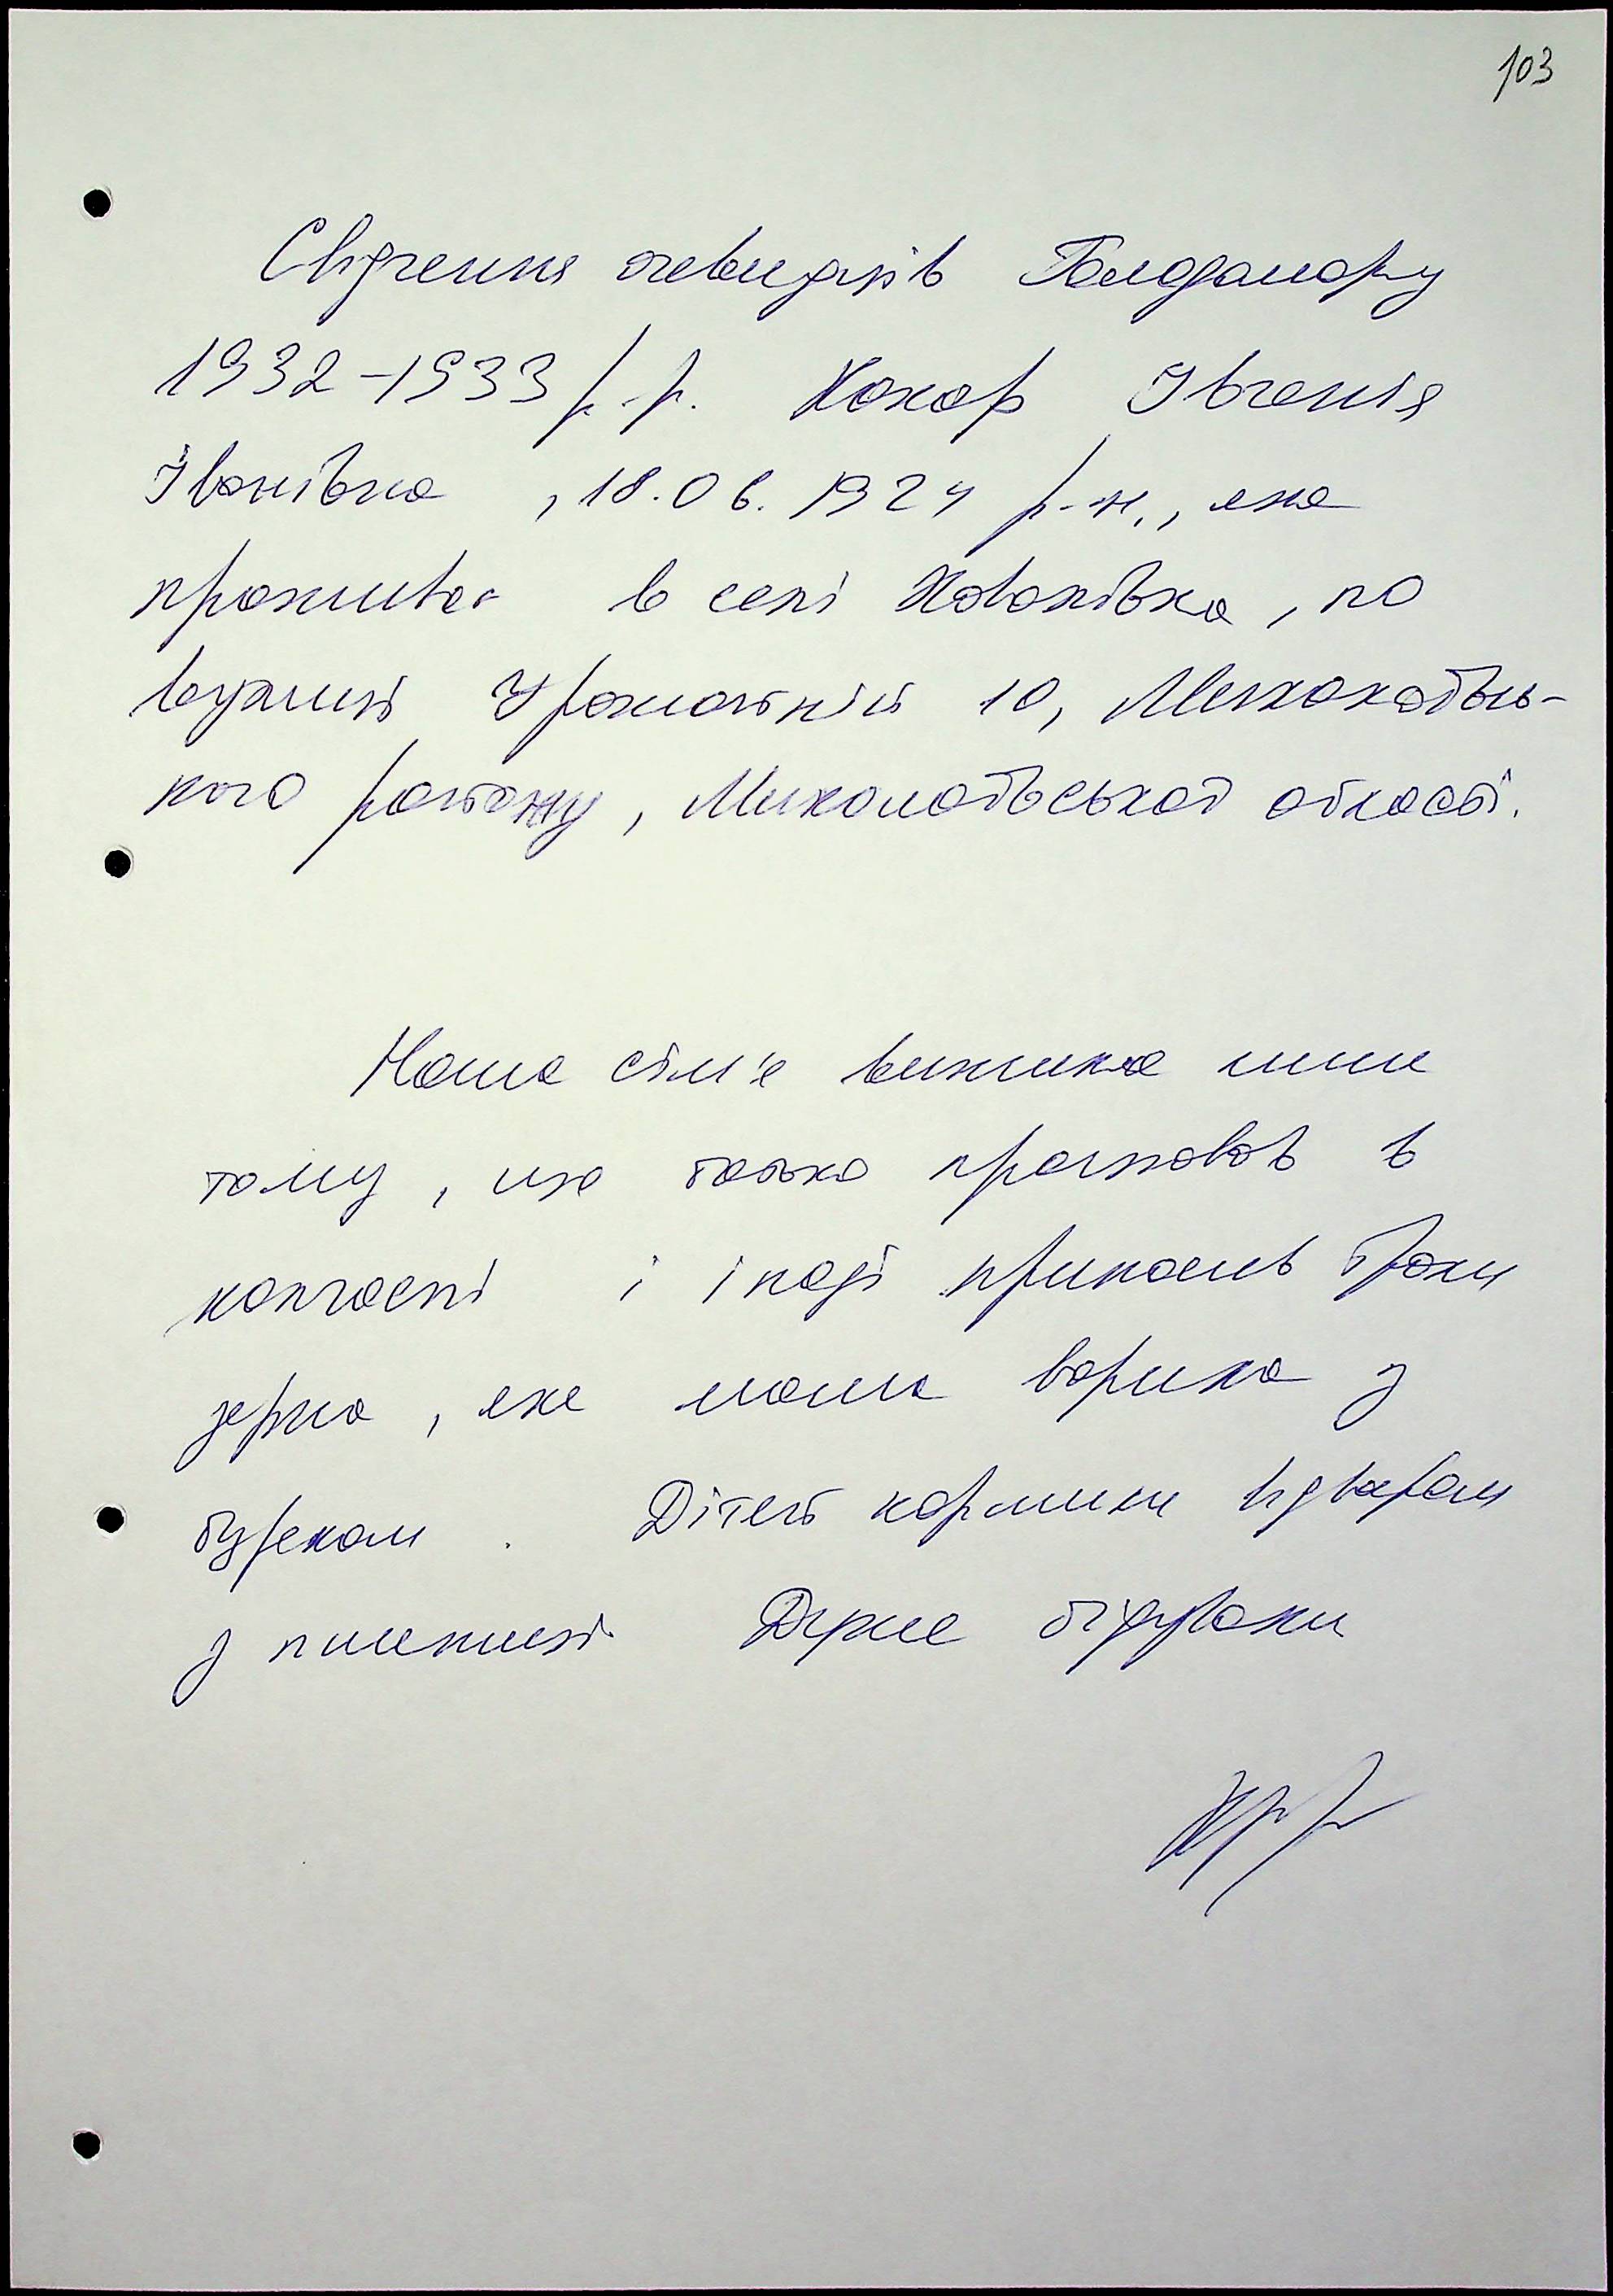 103
Свідчення очевидців Голодомору
1932-1933 р.р. Кокор Івгенія
Іванівна, 18.06.1924 р.н., яка
проживає в селі Ковалівка, по
вулиці Урожайній 10, Миколаївсь-
кого району, Миколаївської області.
Наша сім'я вижила лише
тому, що батько працював в
колгоспі і іноді приносив трохи
зерна, яке мама варила з
буряком. Дітей кормили відваром
з пшениці. Дуже бідували